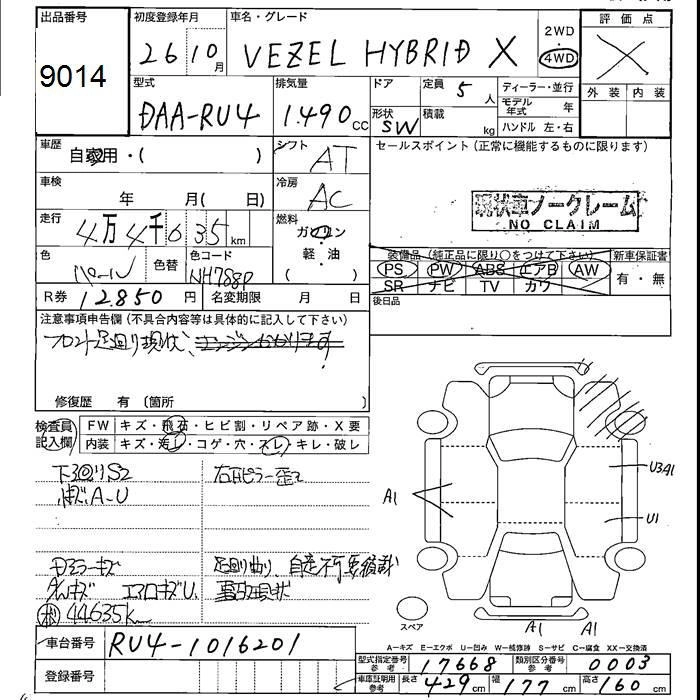 出品番号
9014
初度登録年月
26 10月
車名・グレード
VEZEL HYBRID X
2WD
・
4WD
評価点
X
外装 内装
型式
DAA-RU4
排気量
1.490 cc
ドア
形状
SW
定員 5 人
積載 kg
ディーラー・並行
モデル年式 年
ハンドル 左・右
車歴
自家用・( )
シフト
AT
セールスポイント (正常に機能するものに限ります)
車検
年 月( 日)
冷房
AC
現状車ノークレーム
NO CLAIM
走行
4万4千635km
燃料
ガソリン
軽・油
( )
色
パール
色替
色コード
NH788P
装備品 (純正品に限り○をつけて下さい)
PS PW ABS エアB AW
SR ナビ TV カワ
新車保証書
有・無
後日品
R券 12850 円
名変期限 月 日
注意事項申告欄 (不具合内容等は具体的に記入して下さい)
フロント足廻り現状、エンジンかかります
修復歴 有 〔箇所 〕
検査員
記入欄
FW キズ・飛石・ヒビ割・リペア跡・X要
内装 キズ・汚レ・コゲ・穴・スレ・キレ・破レ
下廻りS2
右Fピラー歪
A-U
ドアミラーキズ
足廻り曲り、自走不可要積載
エアロキズU、
電気現状
44635km
A1
U3A1
U1
スペア
A1 A1
A−キズ E−エクボ U−凹み W−補修跡 S−サビ C−腐食 XX−交換済
車台番号
RU4-1016201
登録番号
型式指定番号 参考
17668
類別区分番号 参考
0003
車庫証明用 参考
長さ 429 cm 幅 177 cm 高さ 160 cm